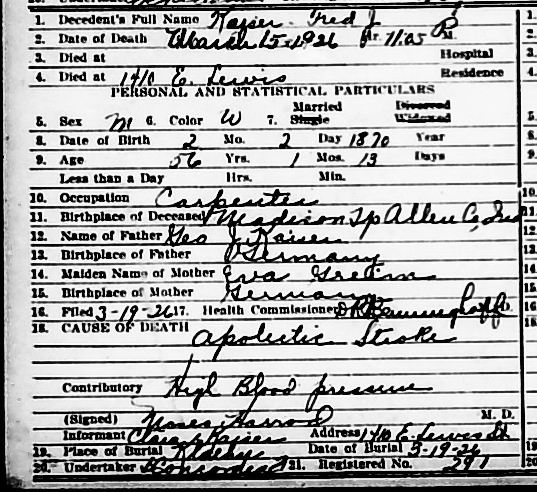 1. Decedent's Full Name Kaiser Fred J
2. Date of Death March 15-1926 Hr. 11.05 P M.
3. Died at Hospital
4. Died at 1710 E. Lewis Residence
PERSONAL AND STATISTICAL PARTICULARS
5. Sex M 6. Color W 7. Married Single Divorced Widowed
8. Date of Birth 2 Mo. 2 Day 1870 Year
9. Age 56 Yrs. 1 Mos. 13 Days
Less than a Day Hrs. Min.
10. Occupation Carpenter
11. Birthplace of Deceased Madison Tp Allen Co, Ind
12. Name of Father Geo J. Kaiser
13. Birthplace of Father Germany
14. Maiden Name of Mother Eva
15. Birthplace of Mother Germany
16. Filed 3-19-26 17. Health Commissioner
18. CAUSE OF DEATH Apolectic Stroke
Contributory High Blood pressure
(Signed) Moses Harrod M. D.
Informant Clara Kaiser Address 1710 E. Lewis St
19. Place of Burial Date of Burial 3-19-26
20. Undertaker 21. Registered No. 291